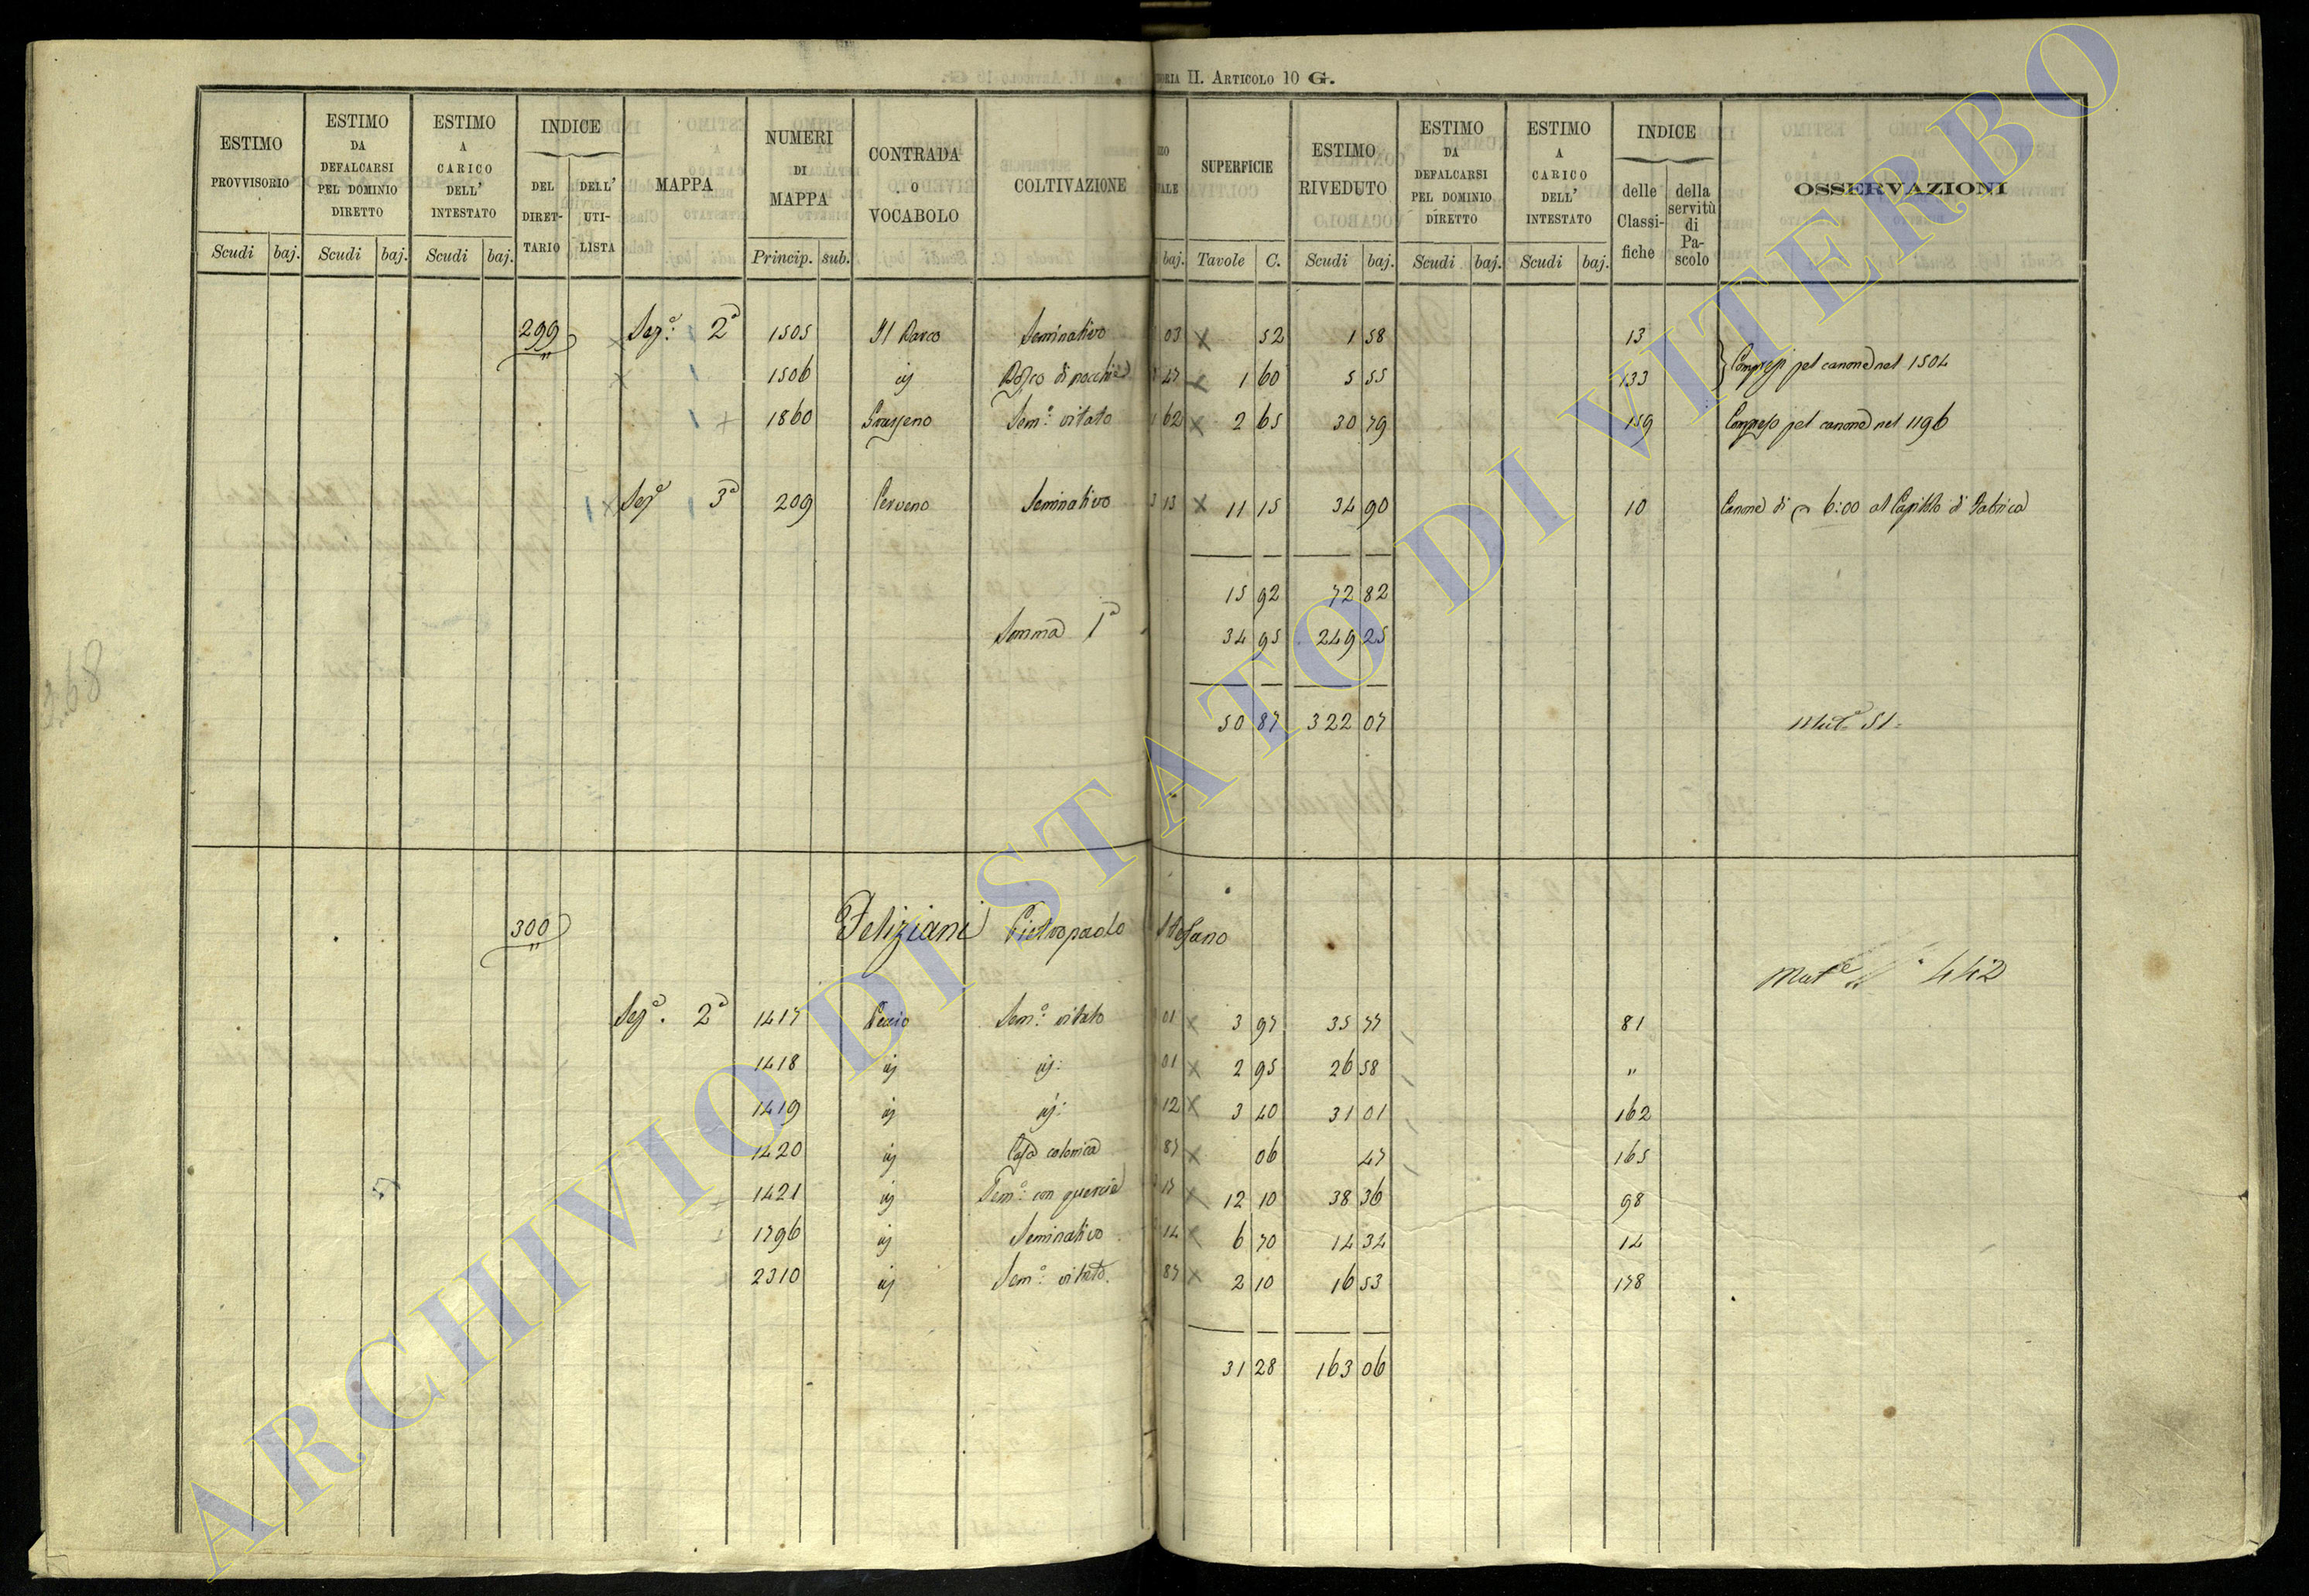 II. Articolo 10 G.
ESTIMO PROVVISORIO ESTIMO DA DEFALCARSI PEL DOMINIO DIRETTO ESTIMO A CARICO DELL' INTESTATO INDICE DEL DIRETTARIO DELL' UTILISTA MAPPA NUMERI DI MAPPA CONTRADA O VOCABOLO COLTIVAZIONE SUPERFICIE ESTIMO RIVEDUTO ESTIMO DA DEFALCARSI PEL DOMINIO DIRETTO ESTIMO A CARICO DELL' INTESTATO INDICE delle Classifiche della servitù di Pascolo OSSERVAZIONI
Scudi baj. Scudi baj. Scudi baj. Princip. sub. baj. Tavole C. Scudi baj. Scudi baj. Scudi baj.
299 Sez.e 2a 1505 Il Parco Seminativo 03 52 1 58 13
1506 Bosco di 47 1 60 5 55 133 Compresi pel canone nel 1504
1860 Sem.o vitato 62 2 65 30 79 159 Compreso pel canone nel 1196
Sez.e 3a 209 Cerveno Seminativo 13 11 15 34 90 10 Canone di 6:00 al Capitolo di Fabrica
15 92 72 82
Somma 1a 34 95 249 25
50 87 322 07 51
300 Feliziani Pietropaolo Stefano
Mut.e 442
Sez.e 2a 1417 Sem.o vitato 01 3 97 35 77 81
1418 ij ij: 01 2 95 26 58 "
1419 ij ij: 12 3 40 31 01 162
1420 ij Casa colonica 87 06 47 165
1421 ij Sem.o con quercie 17 12 10 38 36 98
1796 ij Seminativo 14 6 70 14 34 14
2310 ij Sem.o vitato 87 2 10 16 53 178
31 28 163 06
368
ARCHIVIO DI STATO DI VITERBO